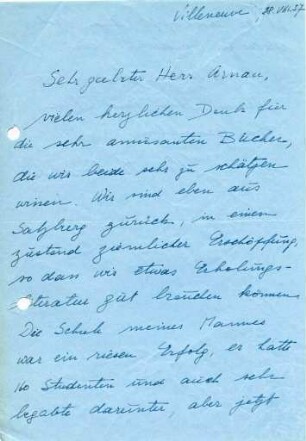 Villeneuve, 28.VIII.57
Sehr geehrter Herr Arnau,
vielen herzlichen Dank für
die sehr amüsanten Bücher,
die wir beide sehr zu schätzen
wissen. Wir sind eben aus
Salzburg zurück, in einem
Zustand ziemlicher Erschöpfung,
so dass wir etwas Erholungs-
literatur gut brauchen können
Die Schule meines Mannes
war ein riesen Erfolg, er hatte
140 Studenten und auch sehr
begabte darunter, aber jetzt